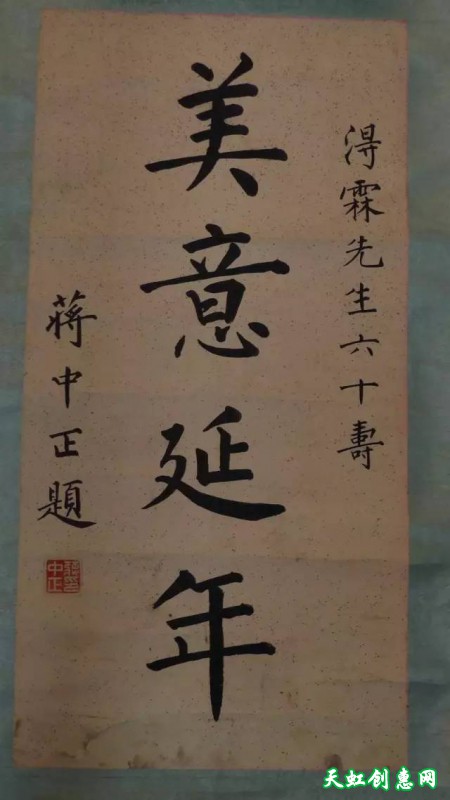 淂霖先生六十壽
美意延年
蔣中正題
蔣中正印
天虹创惠网